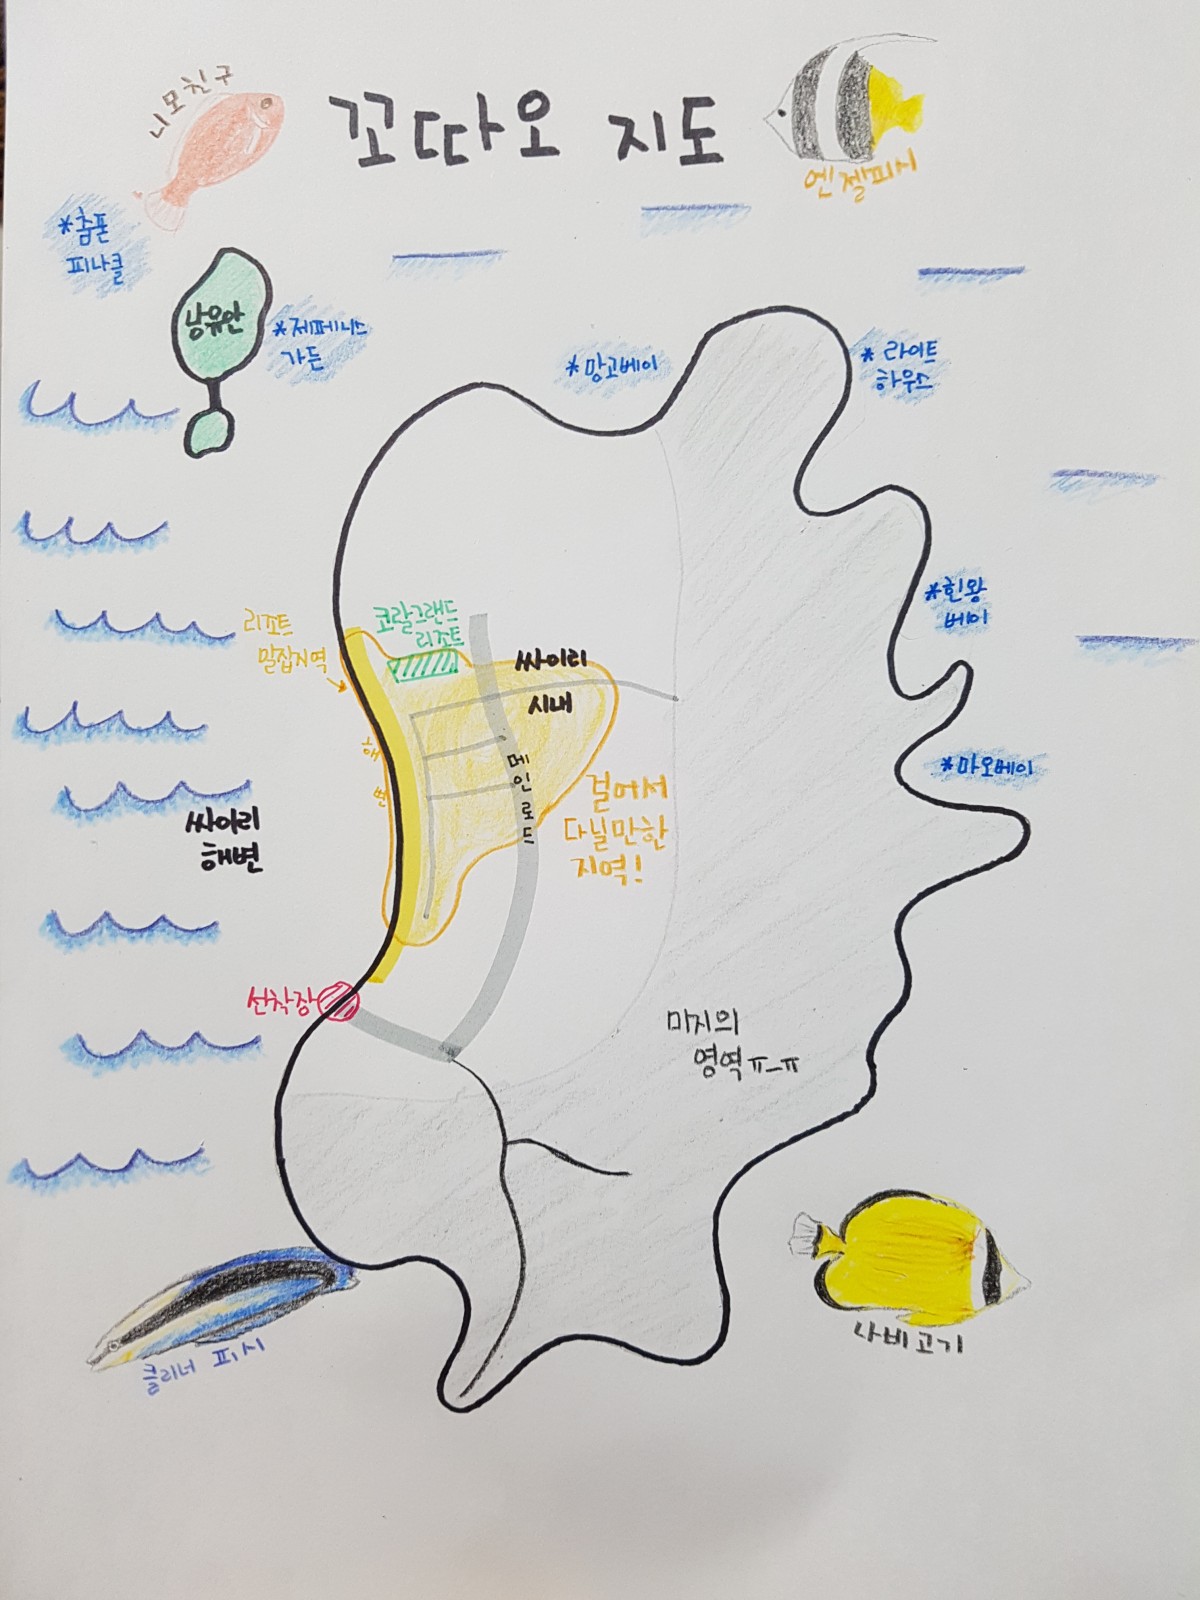 니모친구
꼬따오 지도
엔젤피시
*춤폰
피나클
낭유안
*제페니스
가든
*망고베이
*라이트
하우스
*힌왕
베이
*마오베이
리조트
밀집지역
코랄그랜드
리조트
싸이리
시내
해변
메인로드
걸어서
다닐만한
지역!
싸이리
해변
선착장
미지의
영역ㅠ_ㅠ
클리너 피시
나비고기